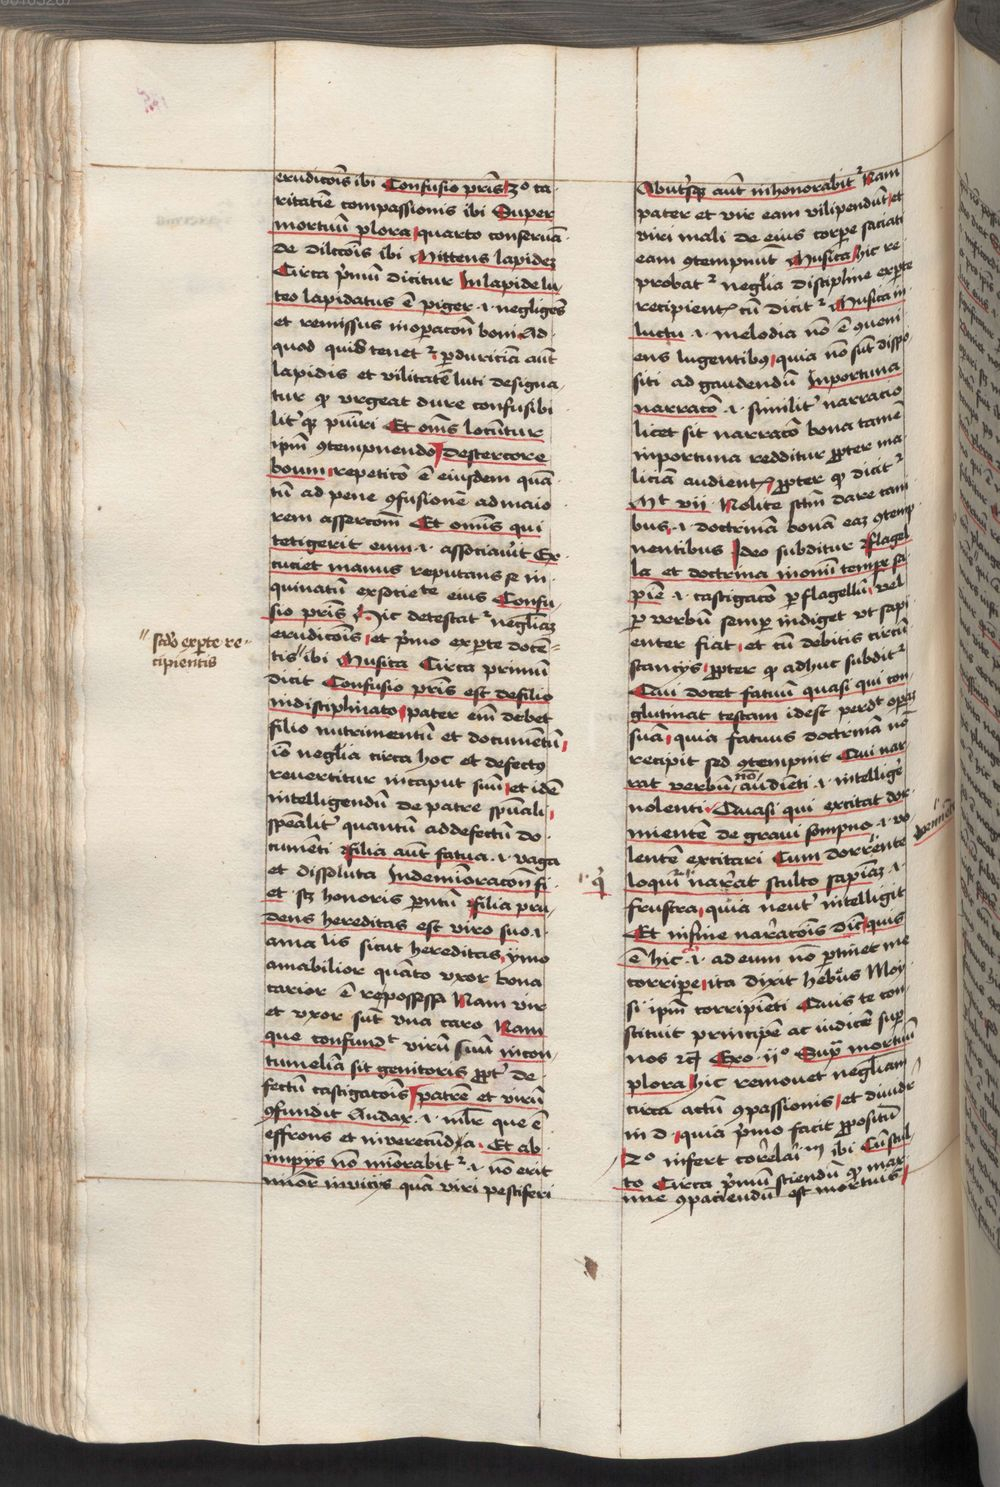 erudicōis ibi Confusio pris 3o ca
ritatie compassionis ibi Super
mortuū plora quarto conseruā
de dilccōis ibi Mittens lapidez
Circa p̄mū dicitur In lapide lu
teo lapidatus ē piger .i. negligēs
et remissus in opacōn boni Ad
quod quid tenet perduriciā aut
lapidis et vilitatē luti designa
tur qd vrgeat dure confusibi
Et om̄s locūtur
ipm 9tempnendo De stercore
boum repeticō ē eiusdem quā
tū ad pene 9fusionē ad maio
rem assercom̄ Et om̄is qui
tetigerit eum .i. associauit Ex
cuciet manus reputans se in
quinatū ex socie te eius Confu
sio pris Hic detestat neglīaz
erudicōis et p̄mo ex pte docē
tis ibi Musica Circa primū
dicit Confusio pris est de filio
indisciplinato pater eni debet
filio nutrimentū et documētū
iō neglīa circa hoc et defectus
reuertitur in caput suū et idē
intelligendū de patre spūali
spēalit quantū ad defectū do
cumēti Filia aut fatua .i. vaga
et dissoluta In deminoracōn fi
et sz honoris pntū Filia pru
dens hereditas est viro suo .i.
ama lis sicut hereditas ymo
amabilior quāto vxor bona
carior ē re possessa Nam vir
et vxor sūt vna caro Nam
que confundt virū suū in con
tumeliā sit genitoris ppt de
fectū castigacōis patrē et virū
9fundit Audax .i. mlr que ē
effrons et inverecūda Et ab
impiis nō minorabit .i. nō erit
minor in viciis quā viri pestiferi
scdo ex pte re
cipientis
Ab utrisqz aut inhonorabit Nam
pater et vir eam vilipendūt et
viri mali de eius corpe saciati
eam 9tempnūt Musica hic re
probat neglīa discipline ex pte
recipient cū dicit Musica in
luctu .i. melodia nō ē 9ueni
ens lugentibus quia nō sūt dispo
siti ad gaudendū Inportuna
narracō .i. similit narracio
licet sit narracō bona tamē
inportuna redditur ppter ma
liciā audient ppter qd dicit
Mt vii Nolite sctm dare cani
bus .i. doctrinā bonā eaz 9temp
nentibus Ideo subditur Flagel
la et doctrina in omi tempe sa
pie .i. castigacō p flagellū vel
p verbū semp indiget vt sapi
enter fiat et cū debitis circū
stanciis ppter qd adhuc subdit
Qui docet fatuū quasi qui con
glutinat testam idest perdt opaz
suā quia fatuus doctrinā nō
recipit sed 9tempnit Qui nar
rat verbū nō audienti .i. intelligē
nolenti Quasi qui excitat dor
mientē de graui sompno .i. vo
lentē excitari Cum dormiente
loqui narrat stulto sapiaz .i.
frustra quia neut intelligit
Et in fine narracōis dic quis
ē hic .i. ad eum nō ptinet me
corripe ita dixit hebus Moy
si ipm corripiēti Quis te con
stituit principē ac iudicē sup
nos Exo iio Sup mortuū
plora hic remouet neglīam
circa actū 9passionis et diuidr
in d quia p̄mo facit ppositū
2o infert corelaiu ibi Cū stul
to Circa p̄mū sciendū qd mar
ime 9paciendū est mortuis